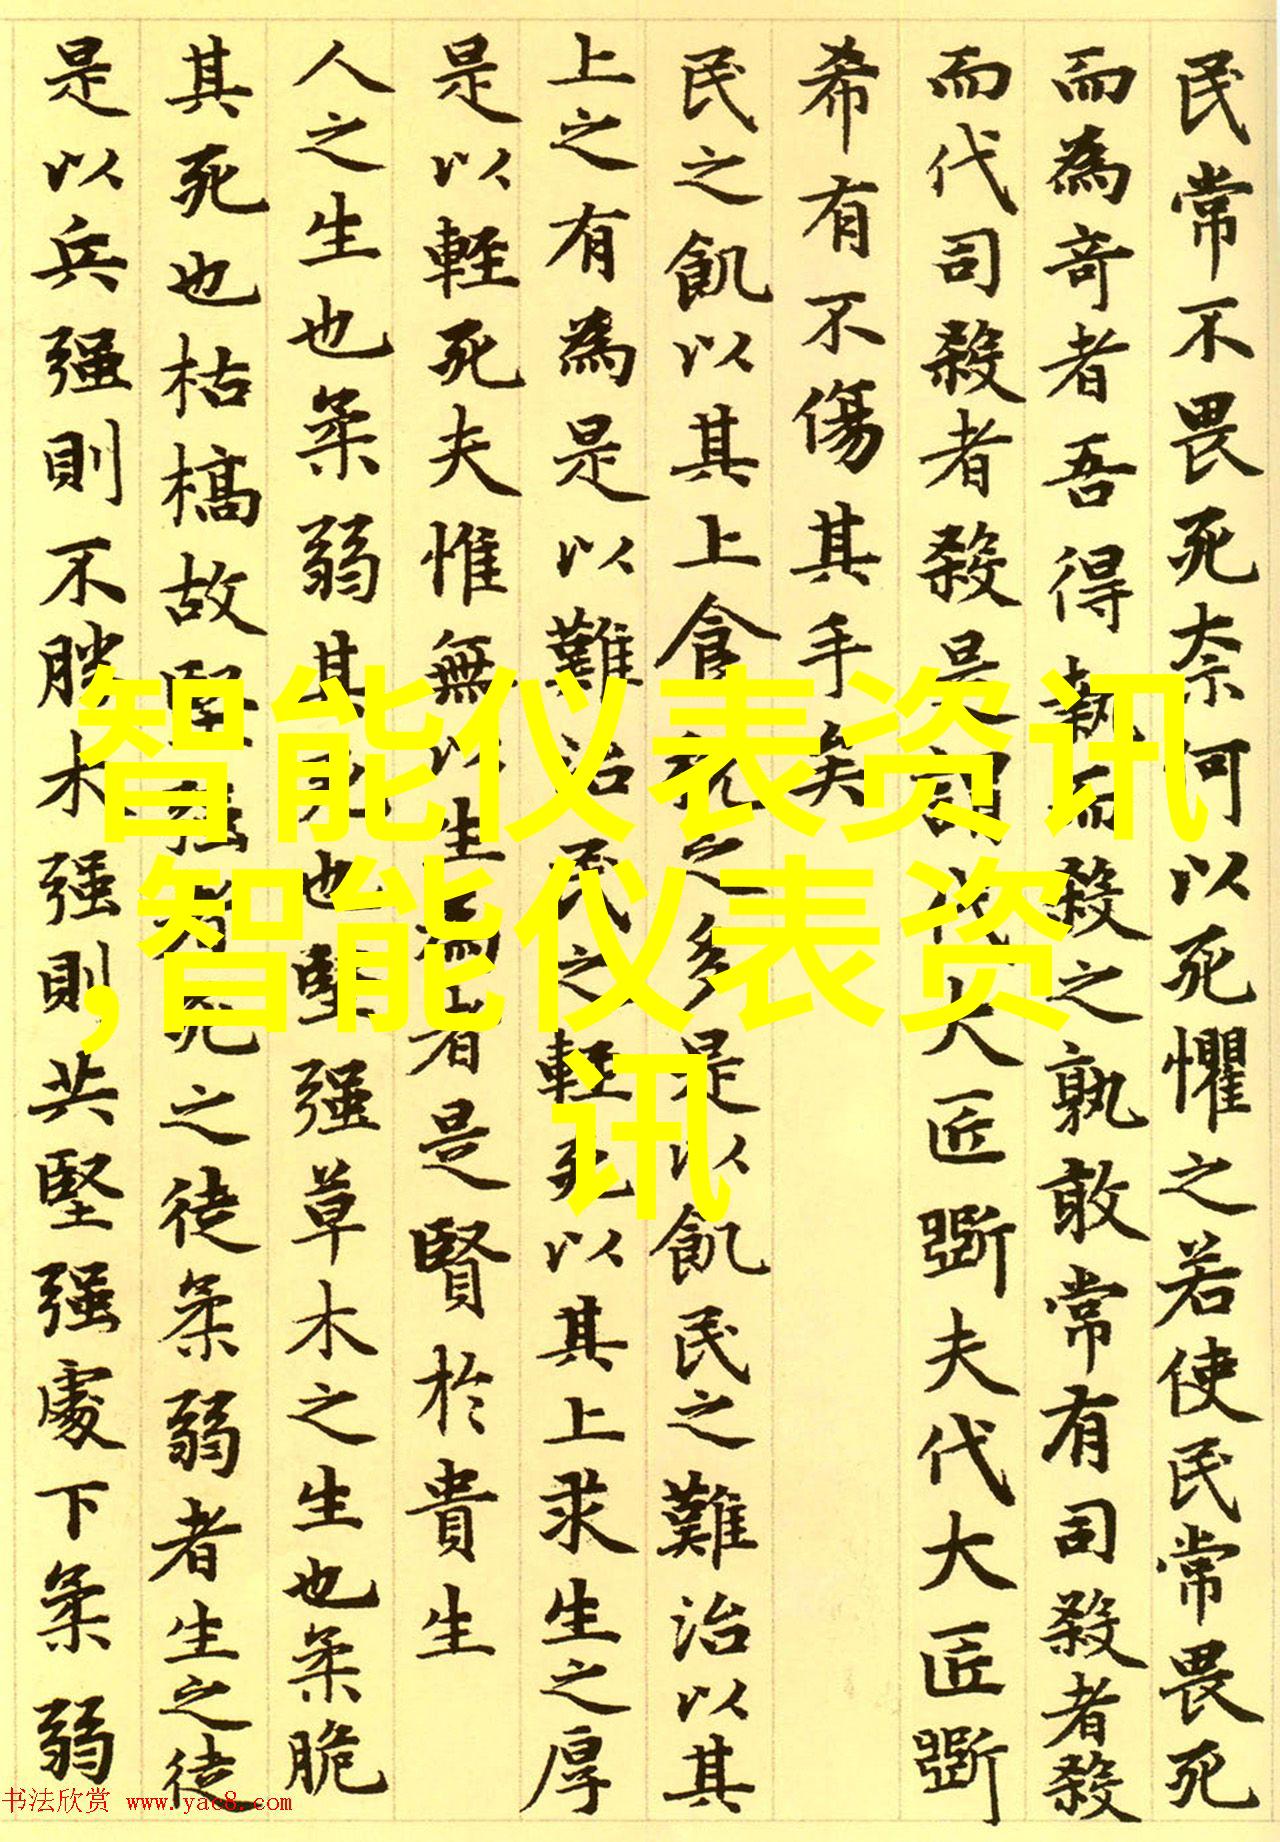 民常不畏死奈何以死懼之若使民常畏死
而為奇者吾得執而殺之孰敢常有司殺者殺
而代司殺者殺是謂代大匠斲夫代大匠斲
希有不傷其手矣
民之飢以其上食税之多是以飢民之難治以其
上之有為是以難治民之輕死以其上求生之厚
是以輕死夫惟無以生為者是賢於貴生
人之生也柔弱其死也堅强草木之生也柔脆
其死也枯槁故堅强者死之徒柔弱者生之徒
是以兵强則不勝木强則共堅强處下柔弱
智能仪表资讯
,智能仪表资
讯
书法欣赏 www.yac8.com